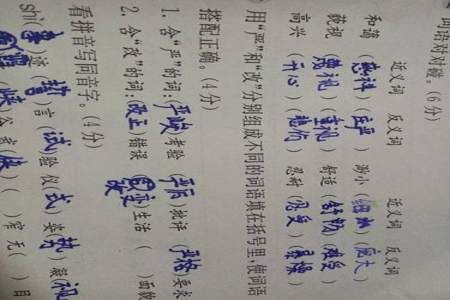 词语对对碰。(6分)
近义词 反义词 近义词 反义词
和蔼( )(庄严) 渺小(细小)(庞大)
藐视(蔑视)(重视) 舒适(舒畅)(难受)
高兴(开心)(悲伤) 忍耐(忍受)( )
用“严”和“改”分别组成不同的词语填在括号里,使词语
搭配正确。(4分)
1. 含“严”的词:(严峻)考验 (严厉)批评 (严格)要求
2. 含“改”的词:(改正)错误 (改变)生活 ( )面貌
看拼音写同音字。(4分)
shì ( )迹 (誓)言 (试)验 仪(式) 姿(势) 凝(视)
(峡)谷 ( ) ( )窄 无( ) 目